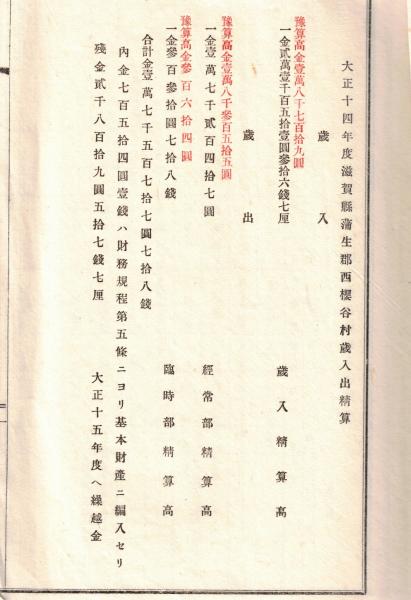 大正十四年度滋賀縣蒲生郡西櫻谷村歲入出精算
歲入
豫算高金壹萬八千七百拾九圓
一金貳萬壹千百五拾壹圓參拾六錢七厘 歲入精算高
歲出
豫算高金壹萬八千參百五拾五圓
一金壹萬七千貳百四拾七圓 經常部精算高
豫算高金參百六拾四圓
一金參百參拾圓七拾八錢 臨時部精算高
合計金壹萬七千五百七拾七圓七拾八錢
內金七百五拾四圓壹錢ハ財務規程第五條ニヨリ基本財產ニ編入セリ
殘金貳千八百拾九圓五拾七錢七厘 大正十五年度ヘ繰越金